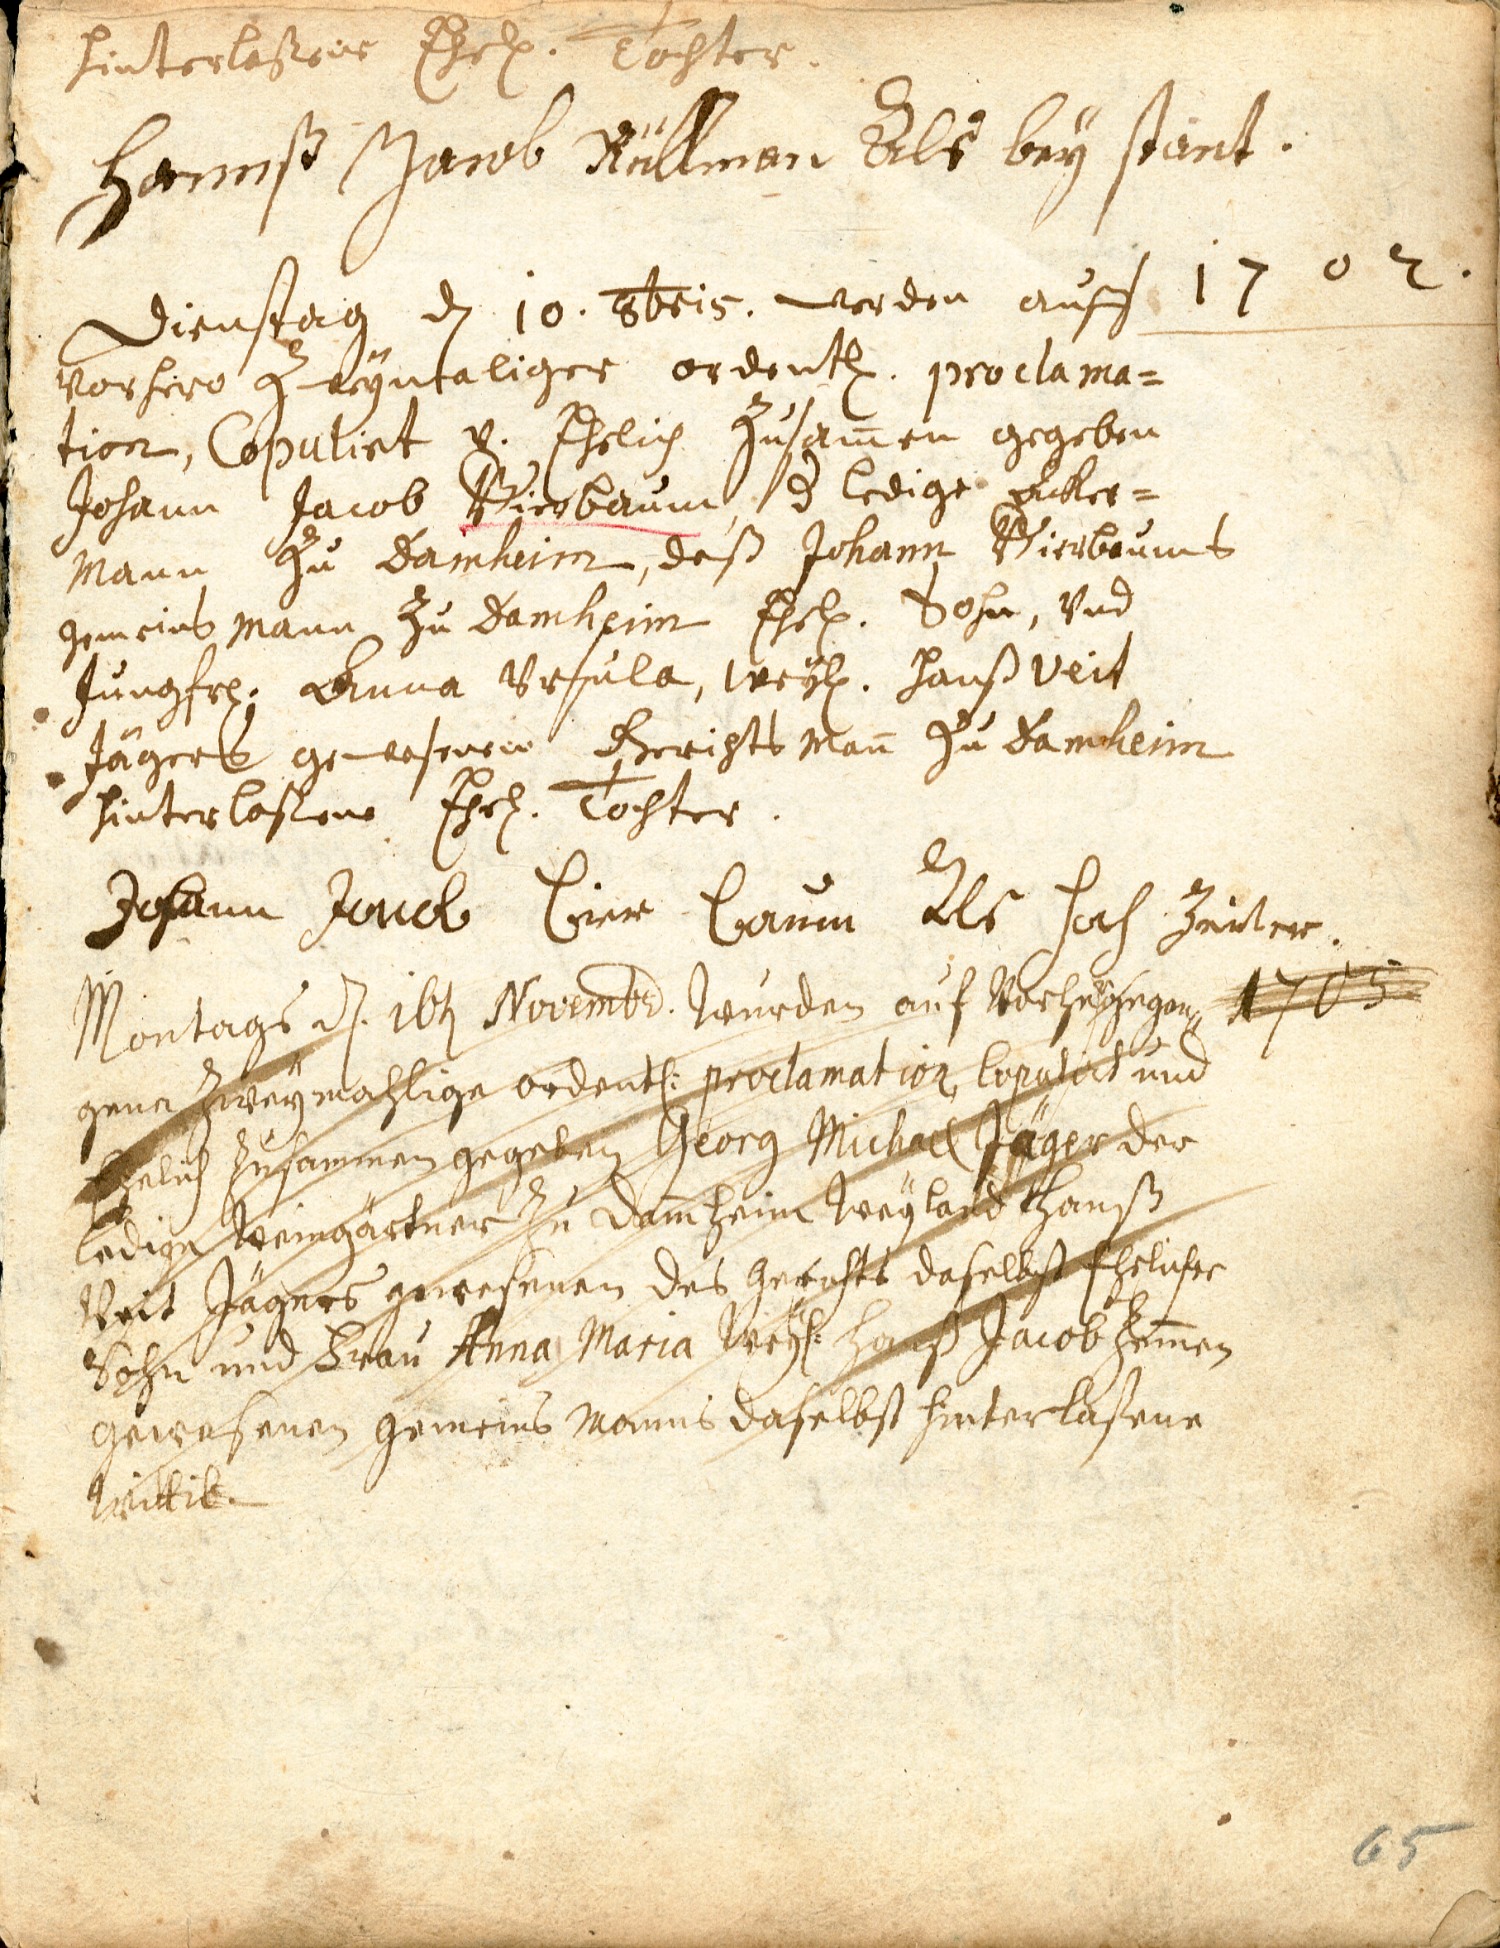 hinterlaßene Ehel. Tochter.
Hannß Jacob Küllman Als bey stant.
1702.
Dienstag d 10. 8bris. werden auff
vorhero zweymaliger ordentl. proclama=
tion, Copulirt v. Ehelich zusam̄en gegeben
Johann Jacob Bierbaum, d ledige Acker=
mann zu Damheim, deß Johann Bierbaums
gemeins mann zu Damheim Ehel. Sohn, Vnd
Jungfrl. Anna Vrsula, weyl. Hanß Veit
Jägers gewesenen Gerichts man̄ zu Damheim
hinterlaßene Ehel. Tochter.
Johann Jacob Bier Baum Als hoch Zeiter.
Montags d. 16t Novembr. wurden auf vorhergegan= 1705
gene zweymahlige ordentl: proclamation Copulirt und
Ehelich zusammen gegeben Georg Michael Jäger der
ledige Weingärtner zu Dam̄heim Weyland Hanß
Veit Jägers gewesenen des Gerichts daselbst Ehelicher
Sohn und Frau Anna Maria Weyl: Hanß Jacob
gewesenen gemeins manns daselbst hinterlaßene
Wittib.
65